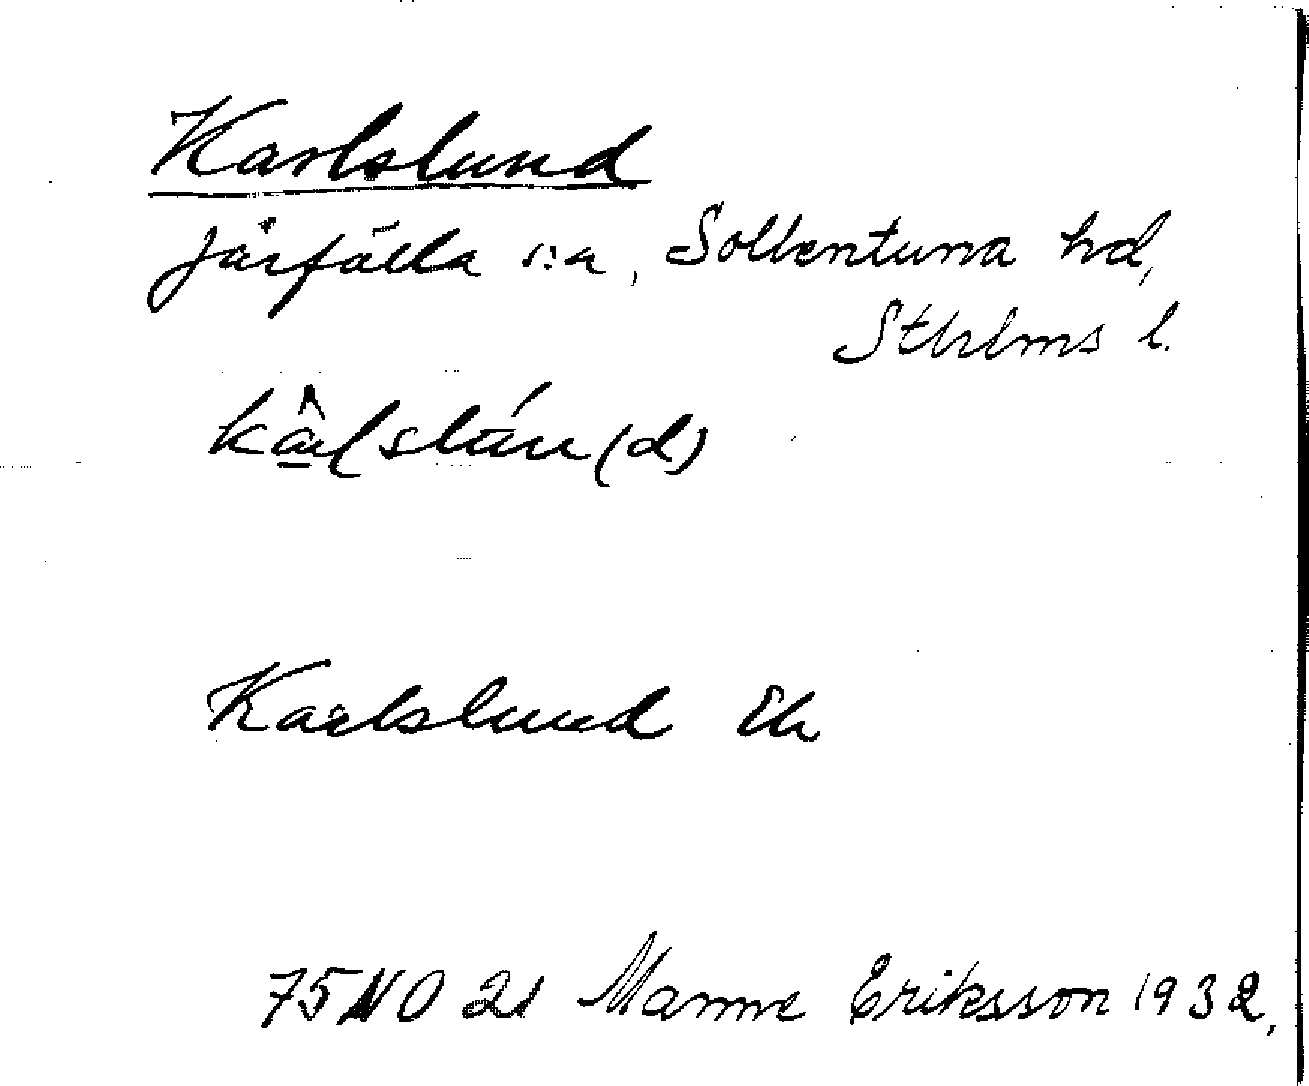 Karlslund
Järfälla s:a, Sollentuna hd,
Sthlms l.
Karlslund Ek
75 NO 21 Manne Eriksson 1932,